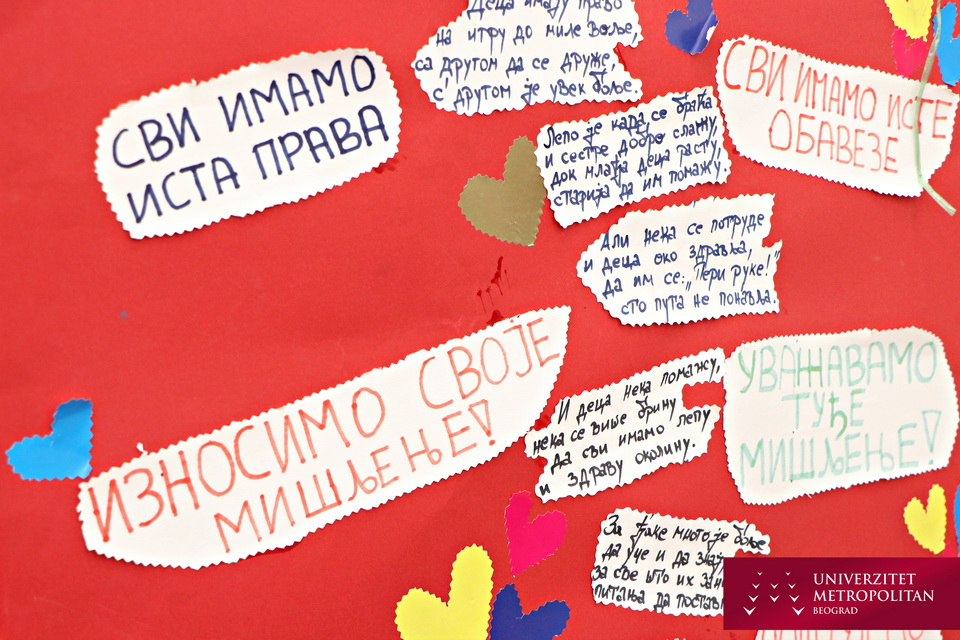 СВИ ИМАМО
ИСТА ПРАВА
Деца имају право
на игру до миле воље,
са другом да се друже,
с другом је увек боље.
СВИ ИМАМО ИСТЕ
ОБАВЕЗЕ
Лепо је када се браћа
и сестре добро слажу,
док млађа деца расту,
старија да им помажу.
Али нека се потруде
и деца око здравља,
да им се: „Пери руке!"
сто пута не понавља.
ИЗНОСИМО СВОЈЕ
МИШЉЕЊЕ!
И деца нека помажу,
нека се више брину
да сви имамо лепу
и здраву околину.
УВАЖАВАМО
ТУЂЕ
МИШЉЕЊЕ!
За ђаке много је боље
да уче и да знају
за све што их
питања да
UNIVERZITET
METROPOLITAN
BEOGRAD